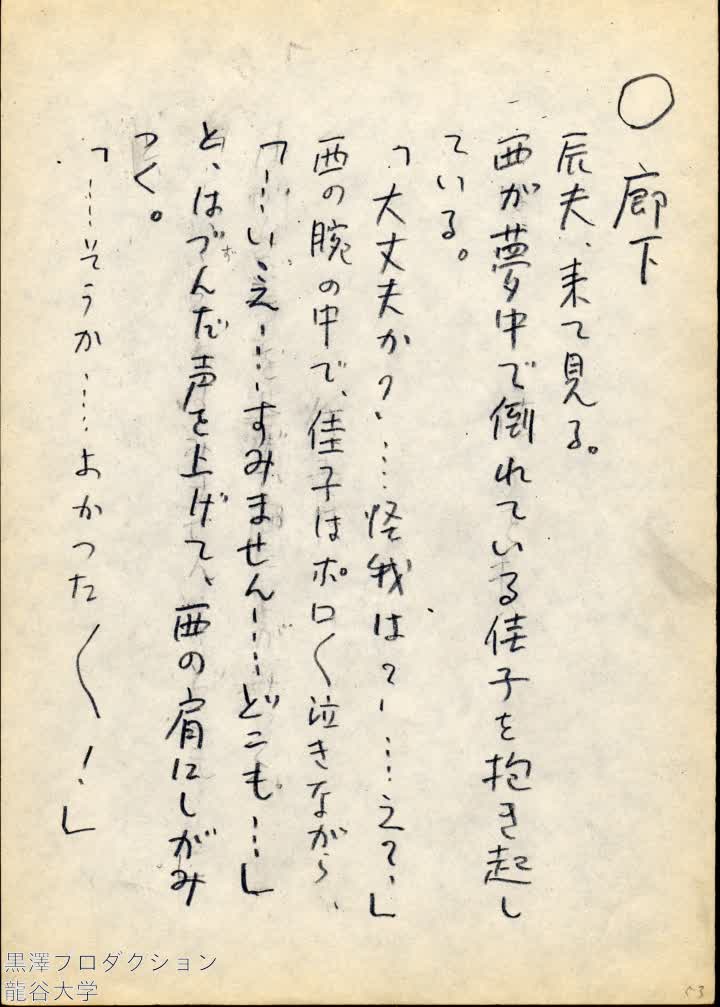 ○ 廊下
辰夫、来て見る。
西が夢中で倒れている佳子を抱き起し
ている。
「大丈夫か？……怪我は？……え？」
西の腕の中で、佳子はポロ〱泣きながら、
「……いゝえ……すみません……どこも……」
と、はづんだ声を上げて、西の肩にしがみ
つく。
「……そうか……よかった〱！」
黒澤プロダクション
龍谷大学
53